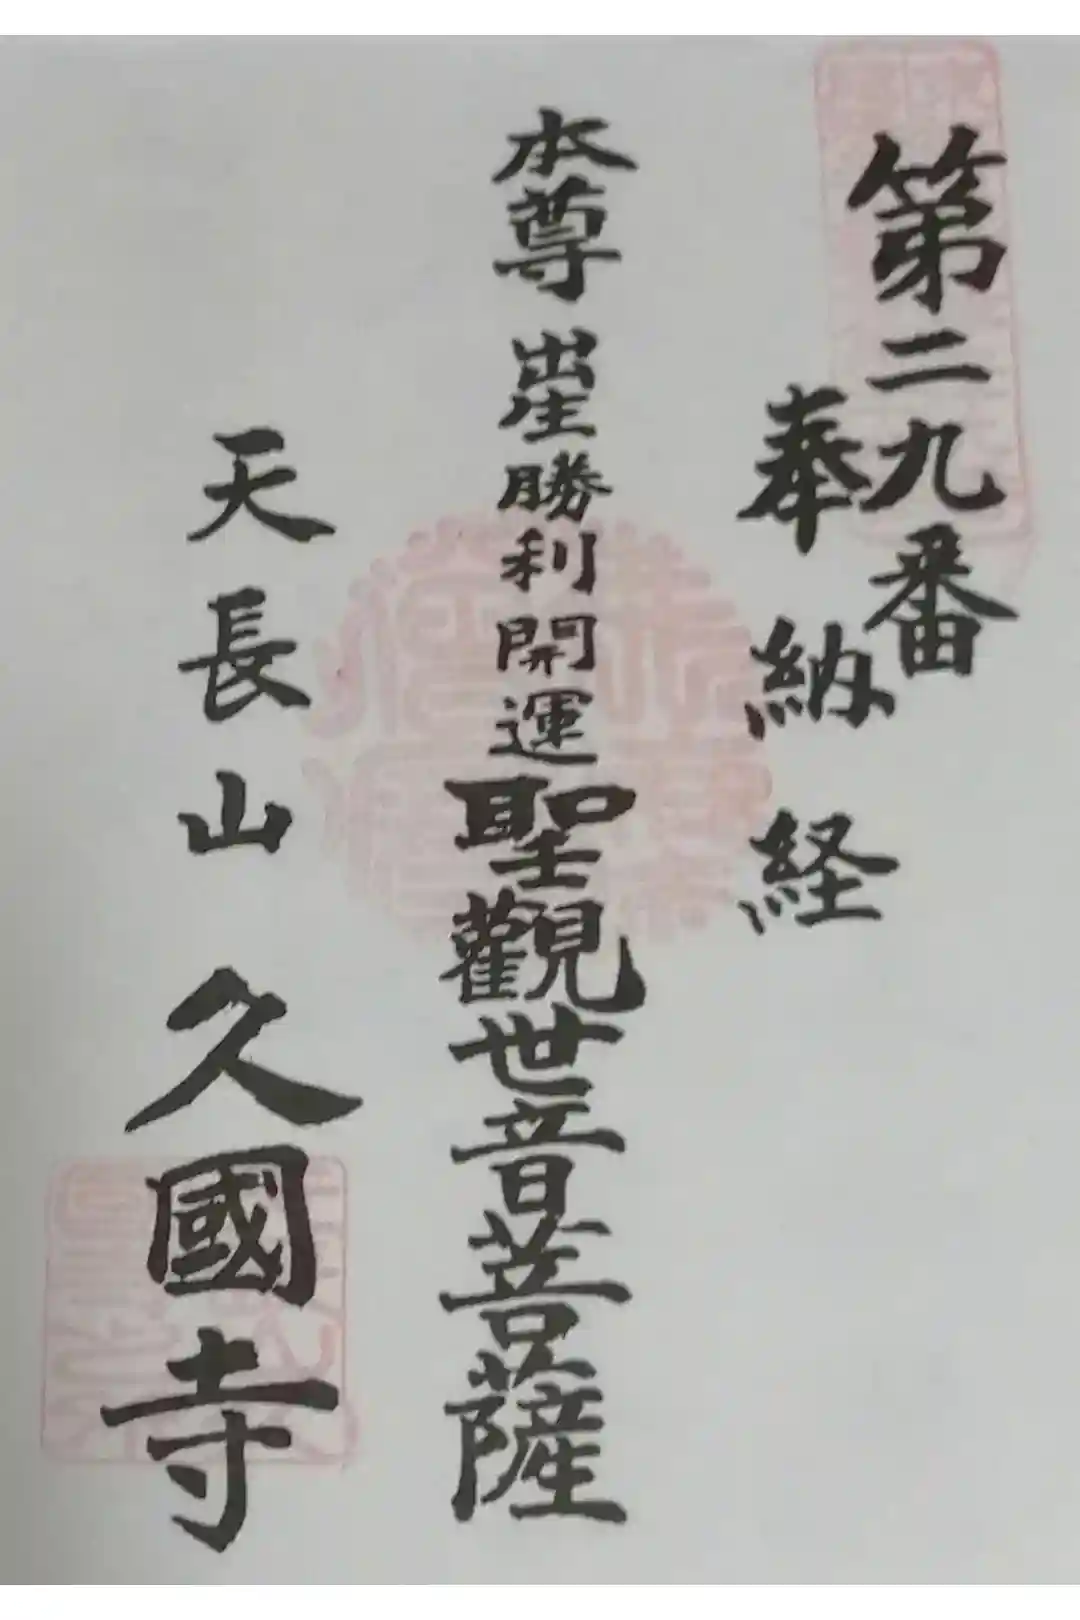 第二九番
奉納経
本尊 出世勝利開運聖觀世音菩薩
天長山久國寺